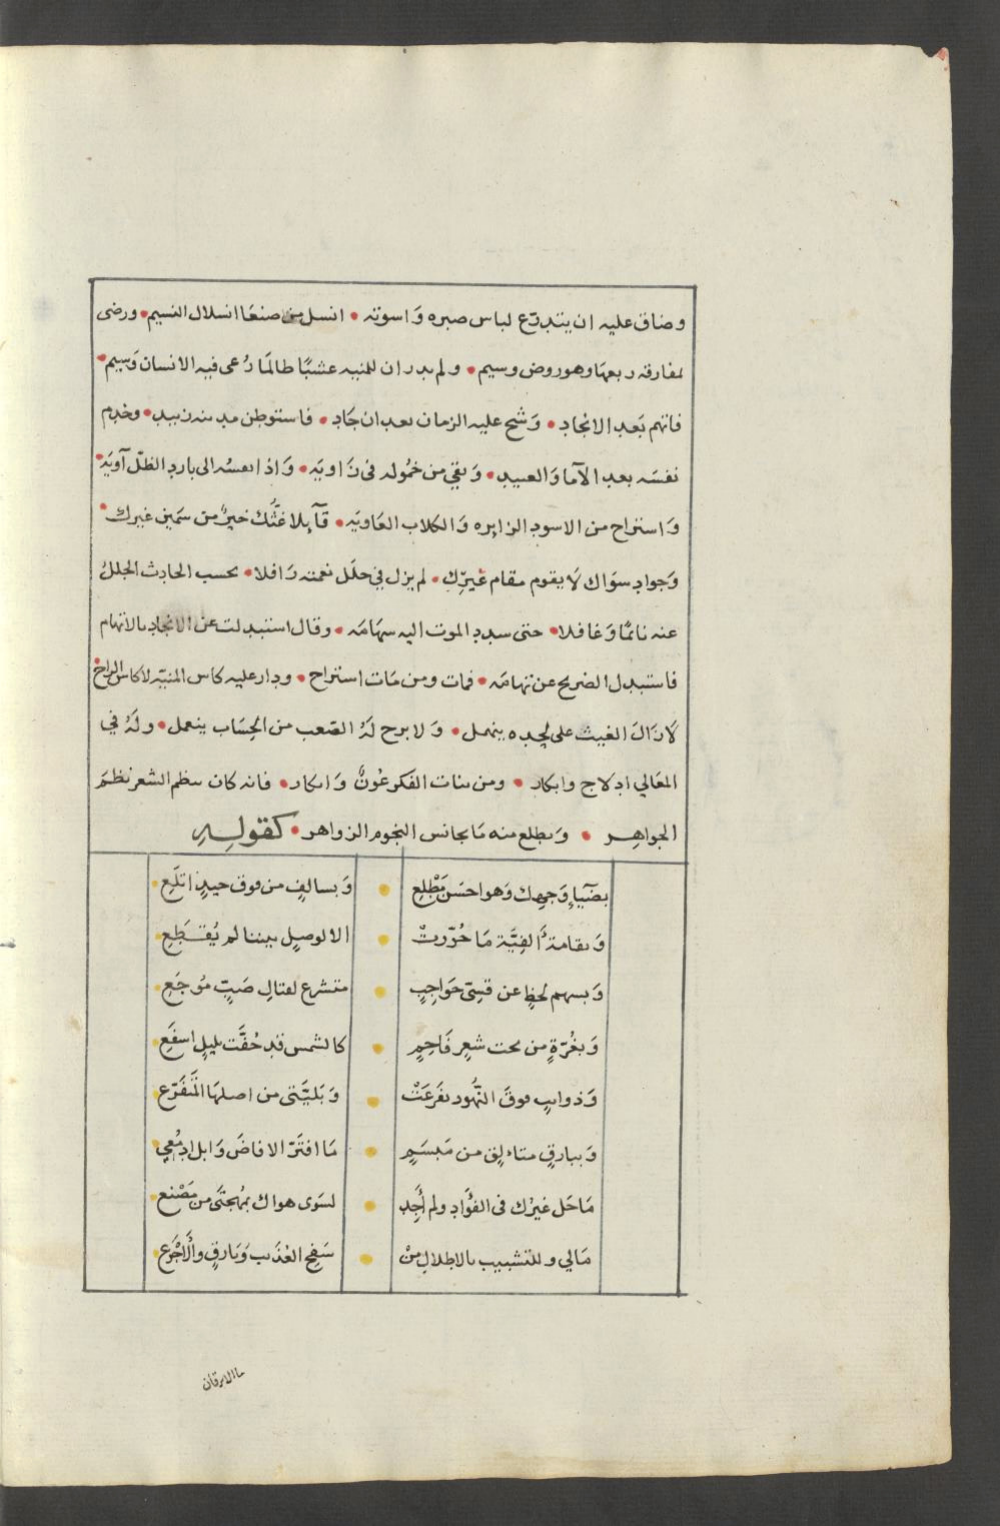 وضاق عليه ان يتدرّع لباس صبره وَاسوته • انسل من صنعَا انسلال النسيم • ورضى
لمفارقه ربعهَا وهو روض وسيم • ولم يدر ان للمنيه عشبًا طالمَا رُعى فيه الانسان وَسيم •
فاتهم بَعد الانجاد • وَشح عليه الزمان بعد ان جَاد • فاستوطن مدينه زبيد • وخدم
نفسَه بعد الآمَا وَالعبيد • وَبقي من خمُوله فى زَاويَه • وَاذا نفسُه الى بارد الظلّ آويَه •
وَاستراح من الاسود الزايره وَالكلاب العَاويَه • قآيلا غثُّك خيرٌ من سَمين غيرك •
وَجواد سوَاك لَا يقوم مقام عَيرِك • لم يزل في حلَل نعمته رَافلا • يحسب الحادث الجللُ
عنه نائمًا وَغافلا • حتى سدد الموت اليه سهَامَه • وقال استبدلت عن الانجاد بالاتهام
فاستبدل الضريح عن تهامَه • فمات ومن مَات استراح • ودار عليه كاس المنيّه لا كاس الراح
لَا زَالَ الغيث على لحِده ينهمل • وَ لا برح لَهُ الصّعب من الحِسَاب ينعمل • ولَهُ في
المعَالي ادلاج وابكار • ومن بنات الفكر عُونٌ وَابكار • فانه كان ينظم الشعر نظمَ
الجواهِر • وَيطلع منه مَا يجانس النجوم الزواهر • كقولهِ
بضَيآءِ وَجهِك وَهو احسَن مَطْلِع • وَبسالفٍ من فوق جيدٍ اتلَعِ •
وَبقامةٍ أَلفِيَّة مَا حُوّرِتْ • الا لوصلٍ بيننا لم يُقطَعِ •
وَبسهم لحظٍ عن قسِىّ حَوَاجبٍ • متشرع لقتالِ صَبٍّ مُوجَعِ •
وَبغُرّةٍ من تحت شعرٍ فَاحمٍ • كالشمس قد حُفَّت بليلٍ اسفَعِ •
وَذوايبٍ فوقَ النهُود تفَرعَتْ • وَبَليَّتى من اصلهَا المتَفَرّع •
وَببارقٍ متاءلقٍ من مَبسَمٍ • مَا افتَرّ الا فاضَ وَابل ادمُعِي •
مَا حَل غيرُك فى الفؤَادِ ولم أَجِد • لسَوى هواك بمُهجَتى من مَصْنع •
مَالي وللتشبيب بالاطلالِ مِنْ • سَفح العُذَيب وَبَارقٍ والأَجْرَع •